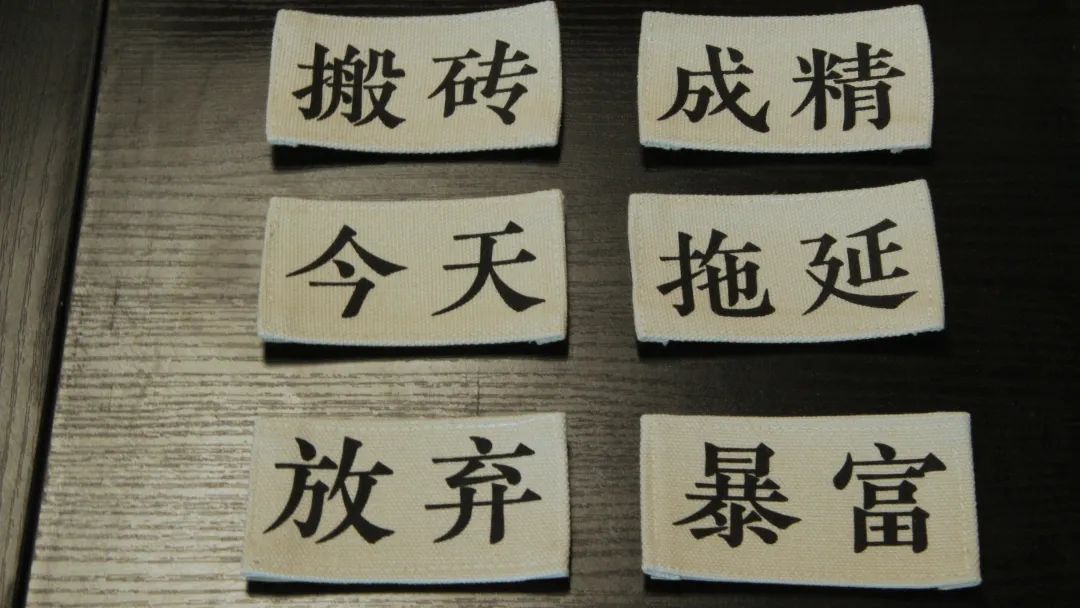 搬砖 成精
今天 拖延
放弃 暴富